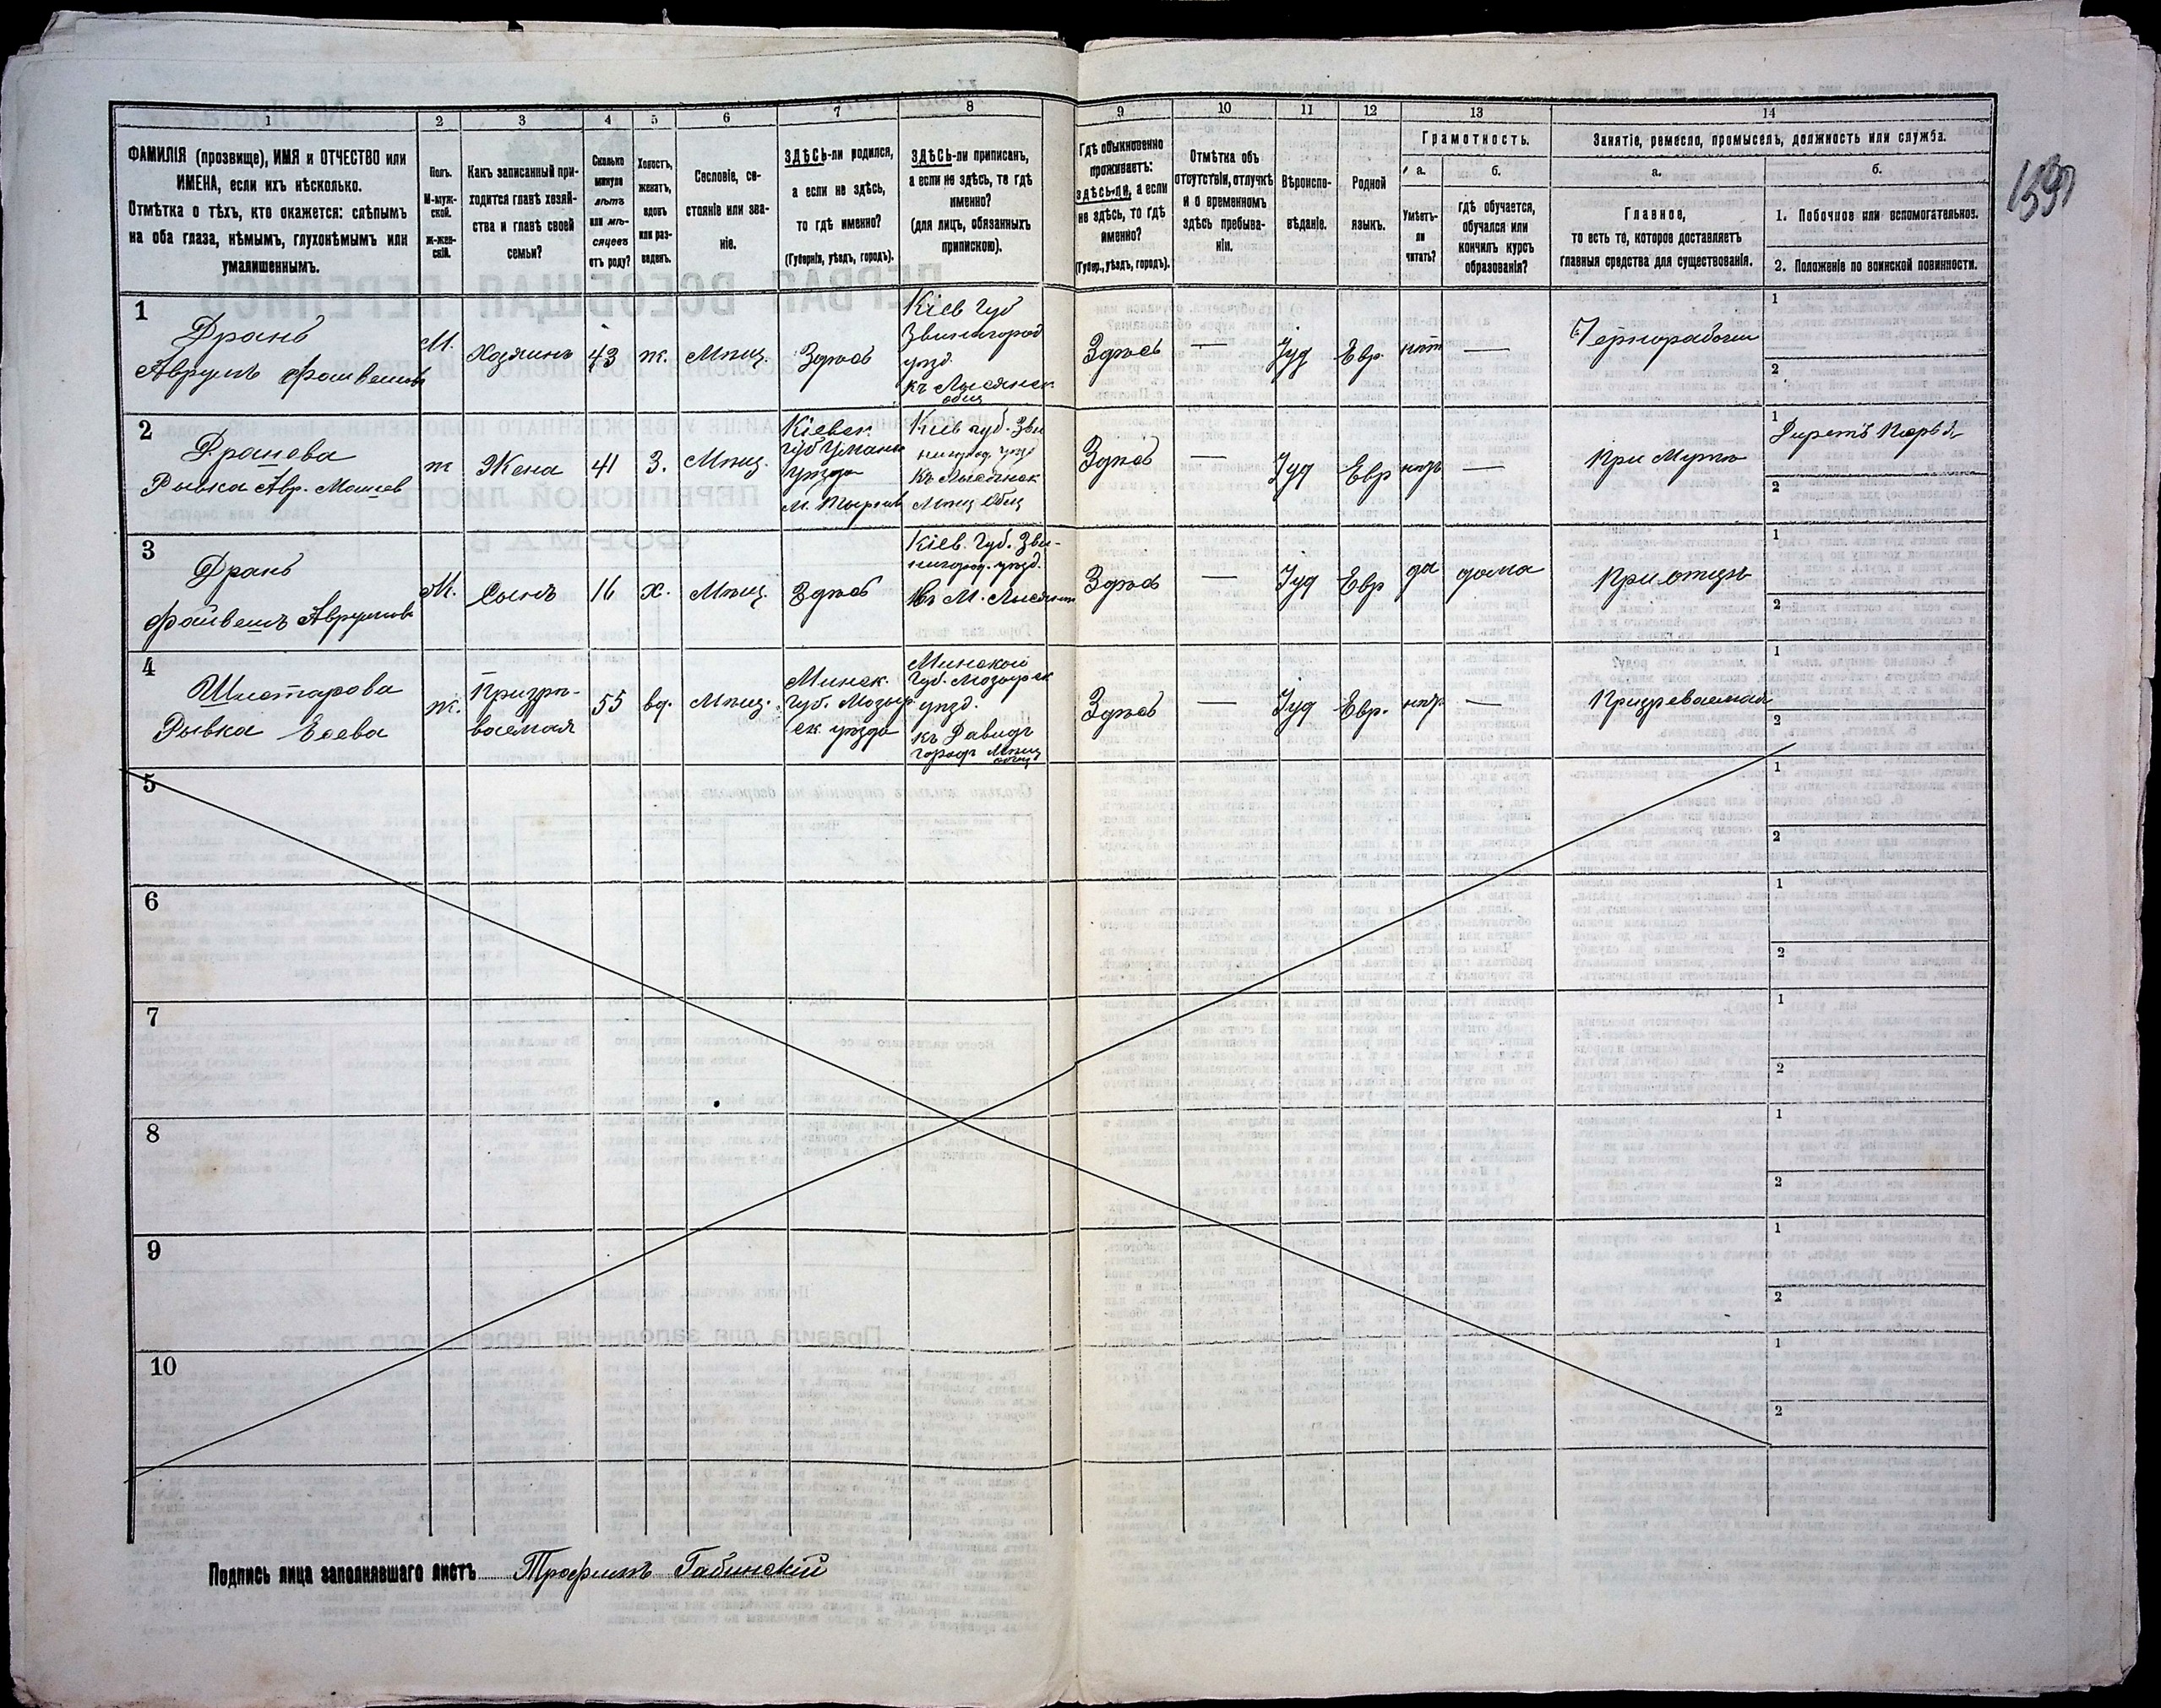 1
2
3
4
5
6
7
8
9
10
11
12
13
14
ФАМИЛІЯ (прозвище), ИМЯ и ОТЧЕСТВО или
ИМЕНА, если ихъ нѣсколько.
Отмѣтка о тѣхъ, кто окажется: слѣпымъ
на оба глаза, нѣмымъ, глухонѣмымъ или
умалишеннымъ.
Полъ.
М-муж-
ской.
Ж-жен-
скій.
Какъ записанный при-
ходится главѣ хозяй-
ства и главѣ своей
семьи?
Сколько
минуло
лѣтъ
или мѣ-
сяцевъ
отъ роду?
Холостъ,
женатъ,
вдовъ
или раз-
веденъ.
Сословіе, со-
стояніе или зва-
ніе.
ЗДѢСЬ-ли родился,
а если не здѣсь,
то гдѣ именно?
(Губернія, уѣздъ, городъ).
ЗДѢСЬ-ли приписанъ,
а если не здѣсь, то гдѣ
именно?
(для лицъ, обязанныхъ
припискою).
Гдѣ обыкновенно
проживаетъ:
ЗДѢСЬ-ли, а если
не здѣсь, то гдѣ
именно?
(Губер., уѣздъ, городъ).
Отмѣтка объ
отсутствіи, отлучкѣ
и о временномъ
здѣсь пребыва-
ніи.
Вѣроиспо-
вѣданіе.
Родной
языкъ.
Грамотность.
а.
Умѣетъ-
ли
читать?
б.
Гдѣ обучается,
обучался или
кончилъ курсъ
образованія?
Занятіе, ремесло, промыселъ, должность или служба.
а.
Главное,
то есть то, которое доставляетъ
главныя средства для существованія.
б.
1. Побочное или вспомогательное.
2. Положеніе по воинской повинности.
1
Дранъ
Аврумъ Файвешовъ
М.
Хозяинъ
43
ж.
Мѣщ.
Здѣсь
Кіев Губ
Звенигород
уѣзд.
къ Лысянск.
общ
Здѣсь
—
Іуд
Евр
нѣт
—
Чернорабочій
1
2
2
Дранова
Рывка Авр. Мошков
ж
Жена
41
З.
Мѣщ.
Кіевск.
Губ Уманск
уѣзда
Кіев губ. Зве
нигород. уѣзд
къ Лысянск
Мѣщ Общ
Здѣсь
—
Іуд
Евр
нѣтъ
—
При Мужѣ
1
2
3
Дранъ
Файвешъ Аврумовъ
М.
Сынъ
16
Х.
Мѣщ.
Здѣсь
Кіев. Губ. Зве-
нигород. уѣзд.
Здѣсь
—
Іуд
Евр
да
дома
При отцѣ
1
2
4
Рывка
ж.
Призрѣ-
ваемая
55
вд.
Мѣщ.
Минск.
Губ. Мозыр
ск. уѣзда
Минской
Губ. Мозырск
уѣзд.
къ Давидъ
городъ Мѣщ
общ
Здѣсь
—
Іуд
Евр.
нѣт
—
Призреваемая
1
2
5
1
2
6
1
2
7
1
2
8
1
2
9
1
2
10
1
2
Подпись лица заполнявшаго листъ Трофимъ Габинскій